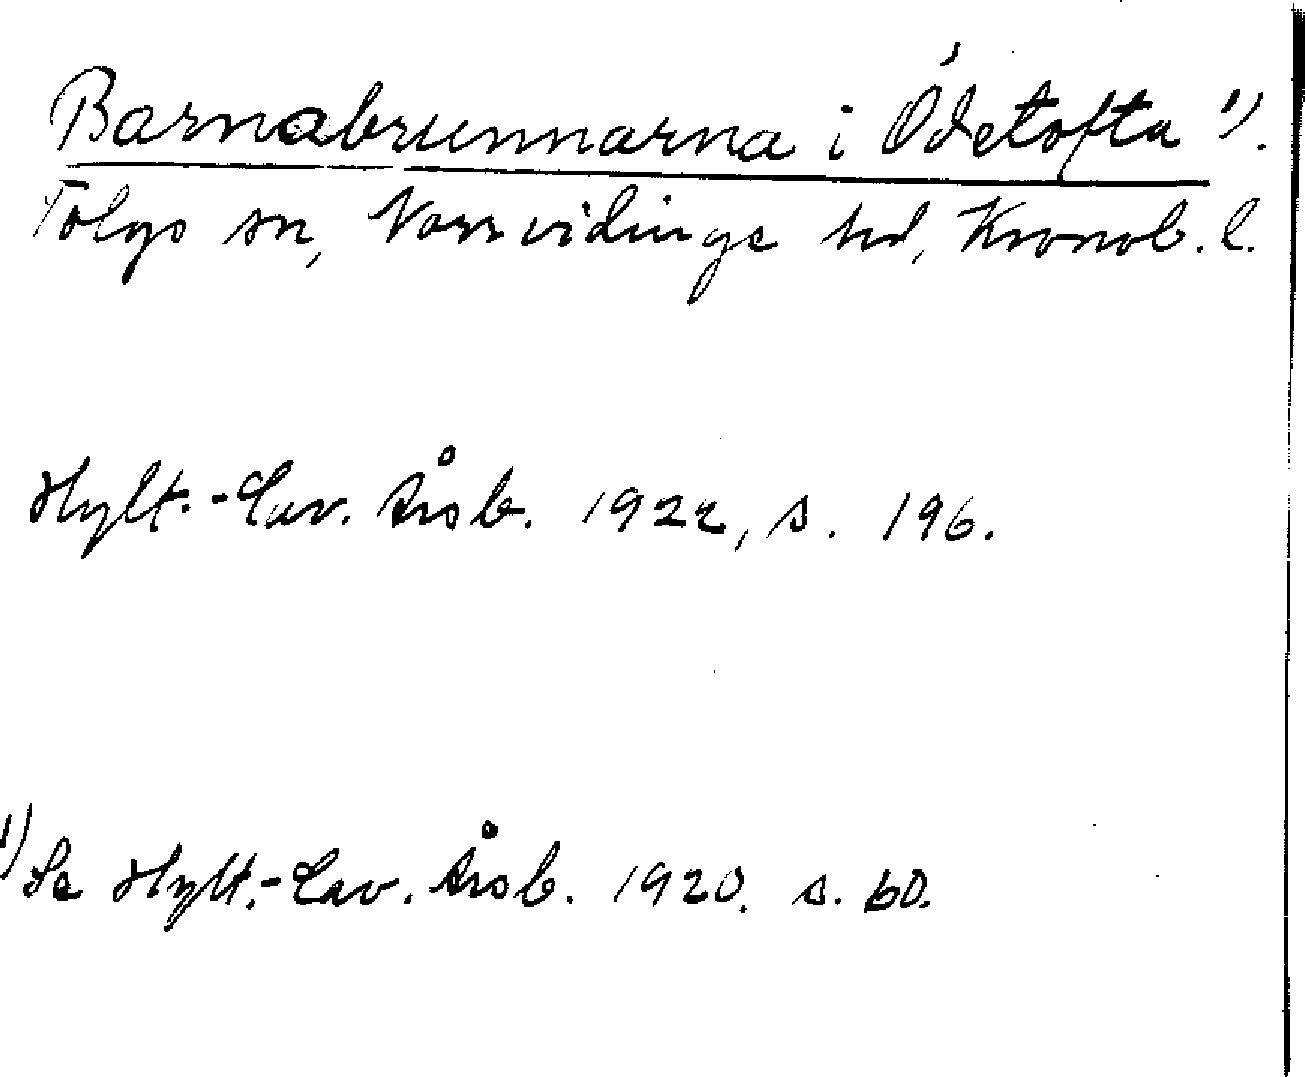 Barnabrunnarna i Ödetofta 1).
Tolgs sn, Norrvidinge hd, Kronob. l.
Hylt.-Cav. Årsb. 1922, s. 196.
1) Se Hylt.-Cav. Årsb. 1920. s. 60.